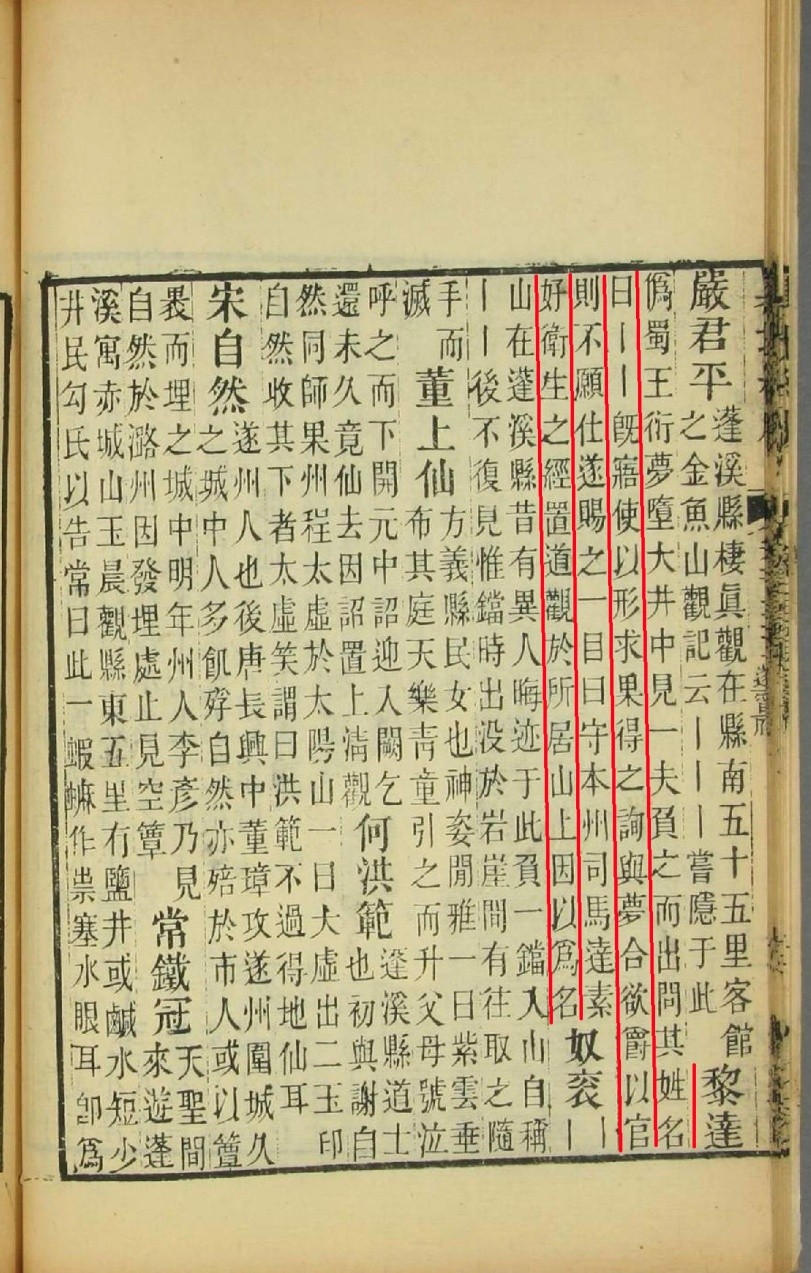 嚴君平
蓬溪縣棲眞觀在縣南五十五里客館
之金魚山觀記云｜｜｜嘗隱于此
黎達
僞蜀王衍夢墮大井中見一夫負之而出問其姓名
曰｜｜旣寤使以形求果得之詢與夢合欲爵以官
則不願仕遂賜之一目曰守本州司馬達素
好衛生之經置道觀於所居山上因以爲名
奴衮
｜
｜
山在蓬溪縣昔有異人晦迹于此負一鐺入山自稱
｜｜後不復見惟鐺時出没於岩崖間有往取之隨
手而
滅
董上仙
方義縣民女也神姿閒雅一日紫雲垂
布其庭天樂靑童引之而升父母號泣
呼之而下開元中詔迎入闕乞
還未久竟仙去因詔置上淸觀
何洪範
蓬溪縣道士
也初與謝自
然同師果州程太虛於太陽山一日大虛出二玉印
自然收其下者太虛笑謂曰洪範不過得地仙耳
宋自然
遂州人也後唐長興中董璋攻遂州圍城久
之城中人多飢殍自然亦殕於市人或以簟
褁而埋之城中明年州人李彥乃見
自然於潞州因發埋處止見空簟
常鐵冠
天聖間
來遊蓬
溪寓赤城山玉晨觀縣東五里有鹽井或鹹水短少
井民勾氏以告常曰此一蝦蟆作祟塞水眼耳卽爲